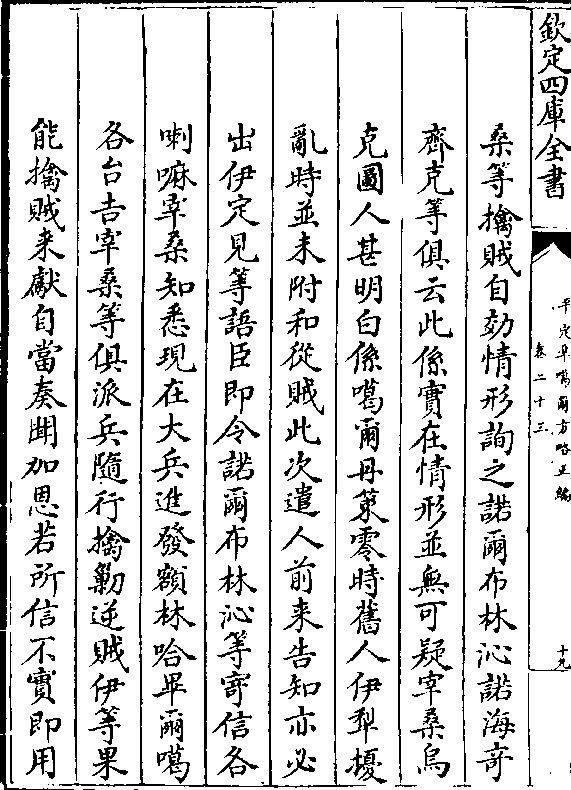 欽定四庫全書
平定準噶爾方略正編
卷二十三
十九
桑等擒賊自効情形詢之諾爾布林沁諾海竒
齊克等俱云此係實在情形並無可疑宰桑烏
克圖人甚明白係噶爾丹策零時舊人伊犁擾
亂時並未附和從賊此次遣人前来告知亦必
出伊定見等語臣即令諾爾布林沁等寄信各
喇嘛宰桑知悉現在大兵進發額林哈畢爾噶
各台吉宰桑等俱派兵隨行擒勦逆賊伊等果
能擒賊来獻自當奏聞加恩若所信不實即用